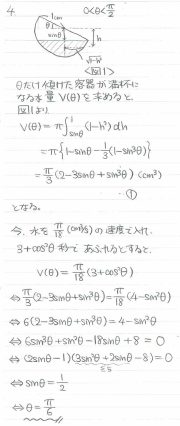 4.
0<θ<π/2
1cm
θ
sinθ
h
√1-h²
<図1>
θだけ傾けた容器が満杯に
なる水量 V(θ)を求めると、
図1より
V(θ) = π∫_{sinθ}^{1} (1-h²) dh
= π{1-sinθ-1/3(1-sin³θ)}
= π/3(2-3sinθ+sin³θ) (cm³)
①
となる。
今、水を π/18 (cm³/s) の速度で入れ、
3+cos²θ 秒であふれるとすると、
V(θ) = π/18(3+cos²θ)
⇔ π/3(2-3sinθ+sin³θ) = π/18(4-sin²θ)
⇔ 6(2-3sinθ+sin³θ) = 4-sin²θ
⇔ 6sin³θ+sin²θ-18sinθ+8 = 0
⇔ (2sinθ-1)(3sin²θ+2sinθ-8) = 0
⇔ sinθ = 1/2
⇔ θ = π/6